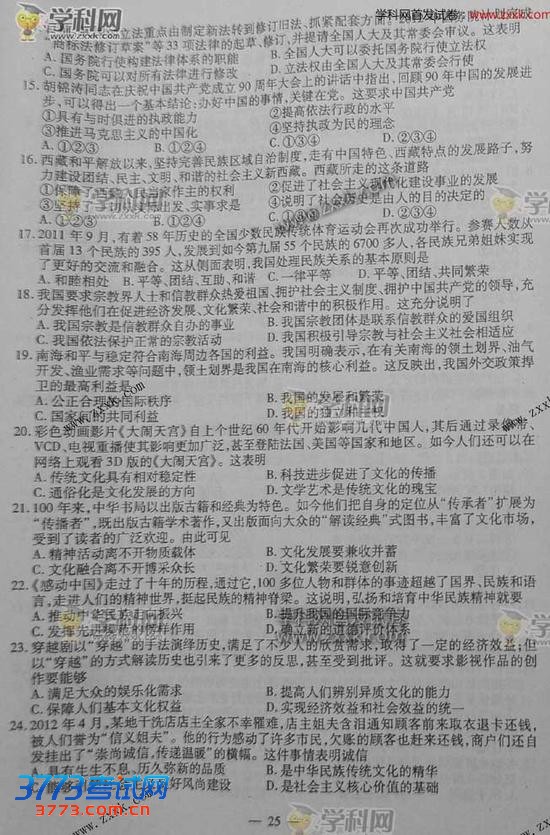 学科网首发试卷 www.zxxk.com
立法重点由制定新法转到修订旧法、抓紧配套方
商标法修订草案”等33项法律的起草、修订，并提请全国人大及其常委会审议。这表明
A. 国务院行使构建法律体系的职能 B. 全国人大可以委托国务院行使立法权
C. 国务院可以对所有法律进行修订 D. 立法权属于全国人大及其常委会
15. 胡锦涛同志在庆祝中国共产党成立90周年大会上的讲话中指出，回顾90年中国的发展进
步，可以得出一个基本结论：办好中国的事情，关键在党。这要求中国共产党
①具有与时俱进的执政能力 ②提高依法行政的水平
③推进马克思主义的中国化 ④坚持执政为民的理念
A. ①②③ B. ①②④ C. ①③④ D. ②③④
16. 西藏和平解放以来，坚持完善民族区域自治制度，走有中国特色、西藏特点的发展路子，努
力建设团结、民主、文明、和谐的社会主义新西藏。西藏所走的这条道路
①保障了西藏人民当家作主的权利 ②促进了社会主义现代化建设事业的发展
③坚持了 出发、实事求是 ④说明了社会历史是由人的目的决定的
A. ①②③ B. ①②④ C. ①③④ D. ②③④
17. 2011年9月，有着58年历史的全国少数民族传统体育运动会再次成功举行。参赛人数从
首届13个民族的395人，发展到如今第九届55个民族的6700多人，各民族兄弟姐妹实现
了更好的交流和融合。这从侧面表明，我国处理民族关系的基本原则是
A. 和睦相处 B. 平等、团结、互助、和谐 C. 一律平等 D. 平等、团结、共同繁荣
18. 我国要求宗教界人士和信教群众热爱祖国、拥护社会主义制度、拥护中国共产党的领导，充
分发挥他们在促进经济发展、文化繁荣、社会和谐中的积极作用。这充分说明了
A. 我国宗教是信教群众自办的事业 B. 我国宗教团体是联系信教群众的爱国组织
C. 我国依法保护正常的宗教活动 D. 我国积极引导宗教与社会主义社会相适应
19. 南海和平与稳定符合南海周边各国的利益。我国明确表示，在有关南海的领土划界、油气
开发、渔业需求等问题中，领土划界是我国在南海的核心利益。这反映出，我国外交政策捍
卫的最高利益是
A. 公正合理的国际秩序 B. 我国的发展和繁荣
C. 国家间的共同利益 D. 我国的独立和主权
20. 彩色动画影片《大闹天宫》自上个世纪60年代开始影响几代中国人，其后通过录像带、
VCD、电视重播使其影响更加广泛，甚至登陆法国、美国等国家和地区。如今人们还可以在
网络上观看3D版的《大闹天宫》。这表明
A. 传统文化具有相对稳定性 B. 科技进步促进了文化的传播
C. 通俗化是文化发展的方向 D. 文学艺术是传统文化的瑰宝
21. 100年来，中华书局以出版古籍和经典为特色。如今他们把自身的定位从“传承者”扩展为
“传播者”，既出版古籍学术著作，又出版面向大众的“解读经典”式图书，丰富了文化市场，
受到了读者的广泛欢迎。由此可见
A. 精神活动离不开物质载体 B. 文化发展要兼收并蓄
C. 文化融合离不开博采众长 D. 文化繁荣要锐意创新
22. 《感动中国》走过了十年的历程，通过它，100多位人物和群体的事迹超越了国界、民族和语
言，走进人们的精神世界，挺起民族的精神脊梁。这说明，弘扬和培育中华民族精神就要
A. 推动中华民族走向振兴 B. 提升我国的国际竞争力
C. 发挥先进模范的榜样作用 D. 确立新的道德评价体系
23. 穿越剧以“穿越”的手法演绎历史，满足了不少人的欣赏需求，取得了一定的经济效益；但
以“穿越”的方式解读历史也引来了更多的反思，甚至受到批评。这就要求影视作品的创
作要能够
A. 满足大众的娱乐化需求 B. 提高人们辨别异质文化的能力
C. 保障人们基本文化权益 D. 实现经济效益和社会效益的统一
24. 2012年4月，某地干洗店店主全家不幸罹难，店主姐夫含泪通知顾客前来取衣退卡还钱，
被人们誉为“信义姐夫”。他的行为感动了许多市民，欠账的顾客也赶来还钱，商户们还自
发挂出了“崇尚诚信，传递温暖”的横幅。这件事情表明诚信
A. 具有生生不息、历久弥新的品质 B. 是中华民族传统文化的精华
好风尚建设 D. 是社会主义核心价值的基础
— 25
学科网
www.zxxk.com
3773考试网
www.3773.com.cn